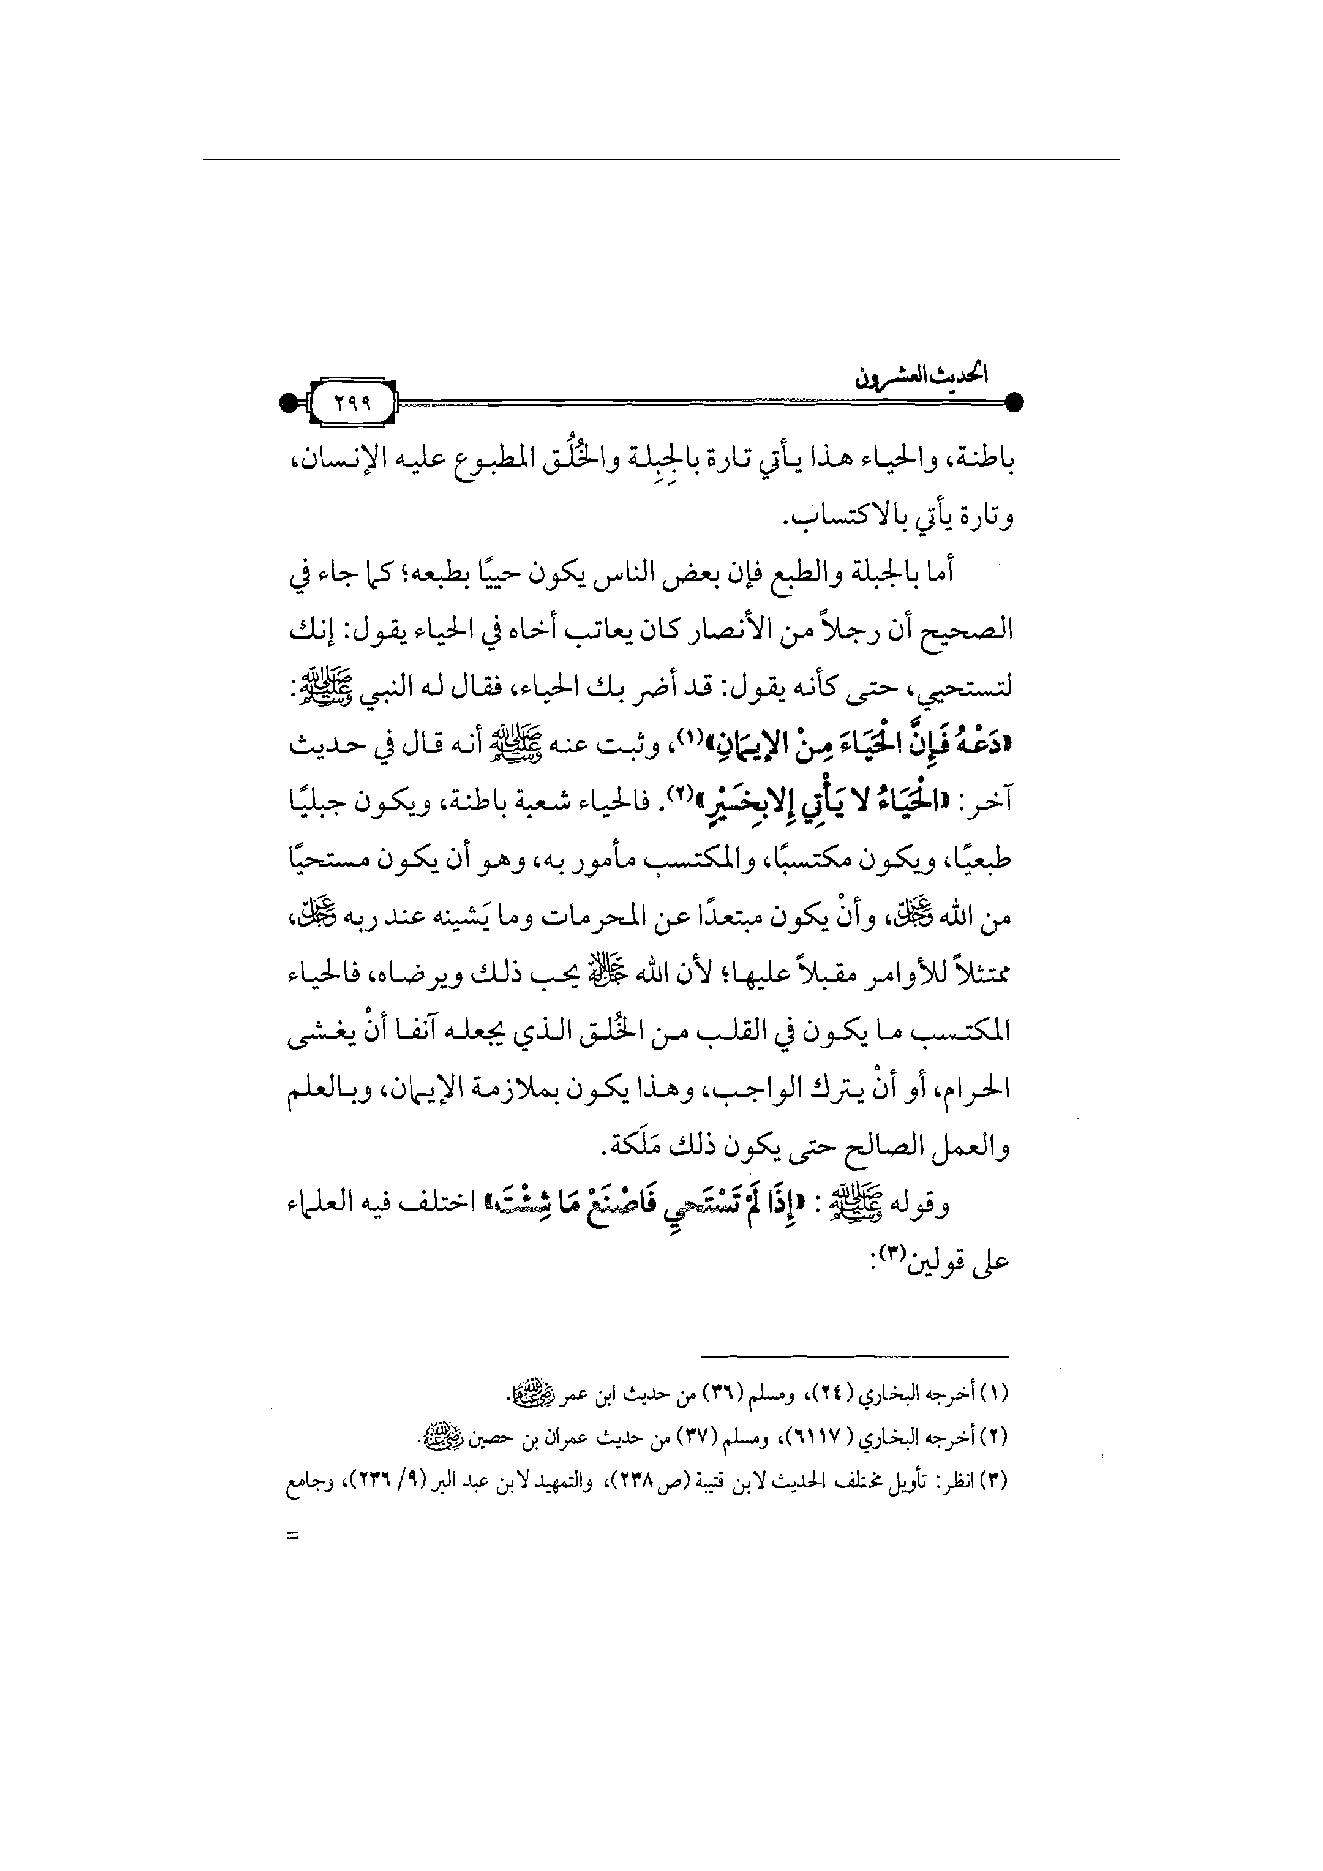 الحديث العشرون
٢٩٩
باطنة، والحياء هذا يأتي تارة بالجِبِلة والخُلُق المطبوع عليه الإنسان،
وتارة يأتي بالاكتساب.
أما بالجبلة والطبع فإن بعض الناس يكون حييًا بطبعه؛ كما جاء في
الصحيح أن رجلاً من الأنصار كان يعاتب أخاه في الحياء يقول: إنك
لتستحيي، حتى كأنه يقول: قد أضر بك الحياء، فقال له النبي ﷺ:
«دَعْهُ فَإِنَّ الْحَيَاءَ مِنْ الإيمَانِ»(١)، وثبت عنه ﷺ أنه قال في حديث
آخر: «الْحَيَاءُ لا يَأْتِي إِلا بِخَيْرٍ»(٢). فالحياء شعبة باطنة، ويكون جبليًا
طبعيًا، ويكون مكتسبًا، والمكتسب مأمور به، وهو أن يكون مستحيًا
من الله ﷿، وأنْ يكون مبتعدًا عن المحرمات وما يَشينه عند ربه ﷿،
ممتثلاً للأوامر مقبلاً عليها؛ لأن الله ﷻ يحب ذلك ويرضاه، فالحياء
المكتسب ما يكون في القلب من الخُلق الذي يجعله آنفا أنْ يغشى
الحرام، أو أنْ يترك الواجب، وهذا يكون بملازمة الإيمان، وبالعلم
والعمل الصالح حتى يكون ذلك مَلَكة.
وقوله ﷺ: «إِذَا لَمْ تَسْتَحيِ فَاصْنَعْ مَا شِئْتَ» اختلف فيه العلماء
على قولين(٣):
(١) أخرجه البخاري (٢٤)، ومسلم (٣٦) من حديث ابن عمر رضي الله عنهما.
(٢) أخرجه البخاري (٦١١٧)، ومسلم (٣٧) من حديث عمران بن حصين رضي الله عنه.
(٣) انظر: تأويل مختلف الحديث لابن قتيبة (ص٢٣٨)، والتمهيد لابن عبد البر (٩/ ٢٣٦)، وجامع
=